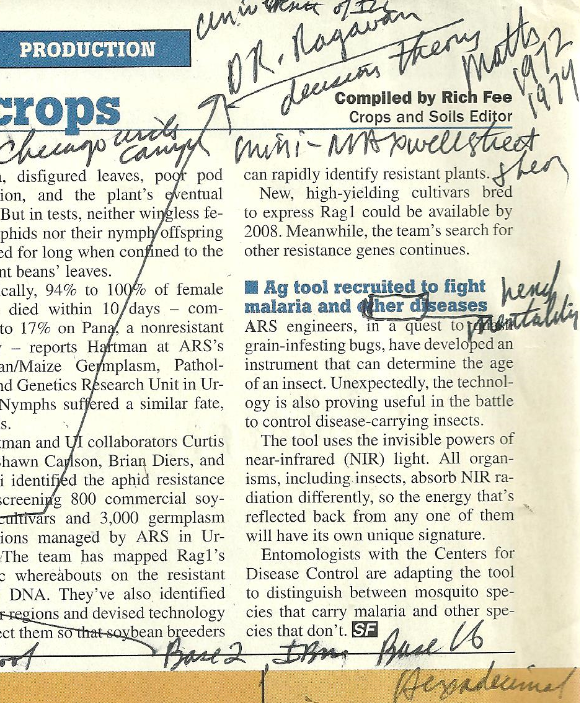 University of Ill
DR. Ragavan
decision theory
Matts
1972
1974
PRODUCTION
crops
Compiled by Rich Fee
Crops and Soils Editor
Chicago
mini-MAxwellstreet
, disfigured leaves, poor pod
ion, and the plant's eventual
But in tests, neither wingless fe-
phids nor their nymph offspring
ed for long when confined to the
nt beans' leaves.
ically, 94% to 100% of female
died within 10 days – com-
to 17% on Pana, a nonresistant
– reports Hartman at ARS's
an/Maize Germplasm, Pathol-
nd Genetics Research Unit in Ur-
Nymphs suffered a similar fate,
s.
tman and UI collaborators Curtis
Shawn Carlson, Brian Diers, and
i identified the aphid resistance
screening 800 commercial soy-
cultivars and 3,000 germplasm
ions managed by ARS in Ur-
The team has mapped Rag1's
c whereabouts on the resistant
DNA. They've also identified
r regions and devised technology
ect them so that soybean breeders
can rapidly identify resistant plants.
New, high-yielding cultivars bred
to express Rag1 could be available by
2008. Meanwhile, the team's search for
other resistance genes continues.
■ Ag tool recruited to fight
malaria and other diseases
herd
mentality
ARS engineers, in a quest to
grain-infesting bugs, have developed an
instrument that can determine the age
of an insect. Unexpectedly, the technol-
ogy is also proving useful in the battle
to control disease-carrying insects.
The tool uses the invisible powers of
near-infrared (NIR) light. All organ-
isms, including insects, absorb NIR ra-
diation differently, so the energy that's
reflected back from any one of them
will have its own unique signature.
Entomologists with the Centers for
Disease Control are adapting the tool
to distinguish between mosquito spe-
cies that carry malaria and other spe-
cies that don't. SF
Base 2 IBM Base 16
Hexadecimal